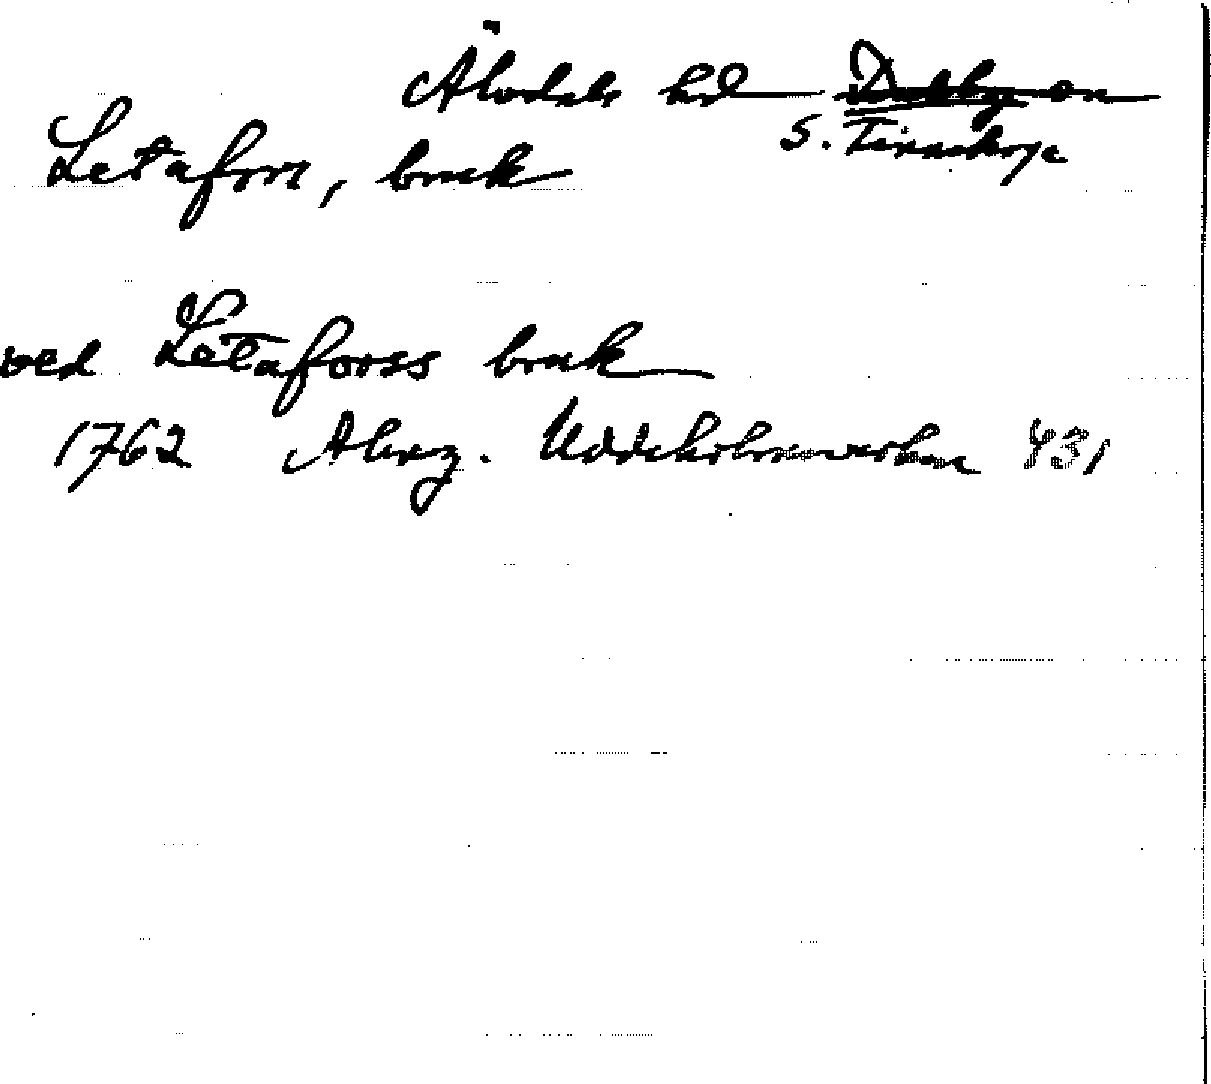 Älvdals hd Dalby sn
S. Finnskoga
Letafors, bruk
ved Letaforss bruk
1762 Alvng. Uddeholmsverken 431